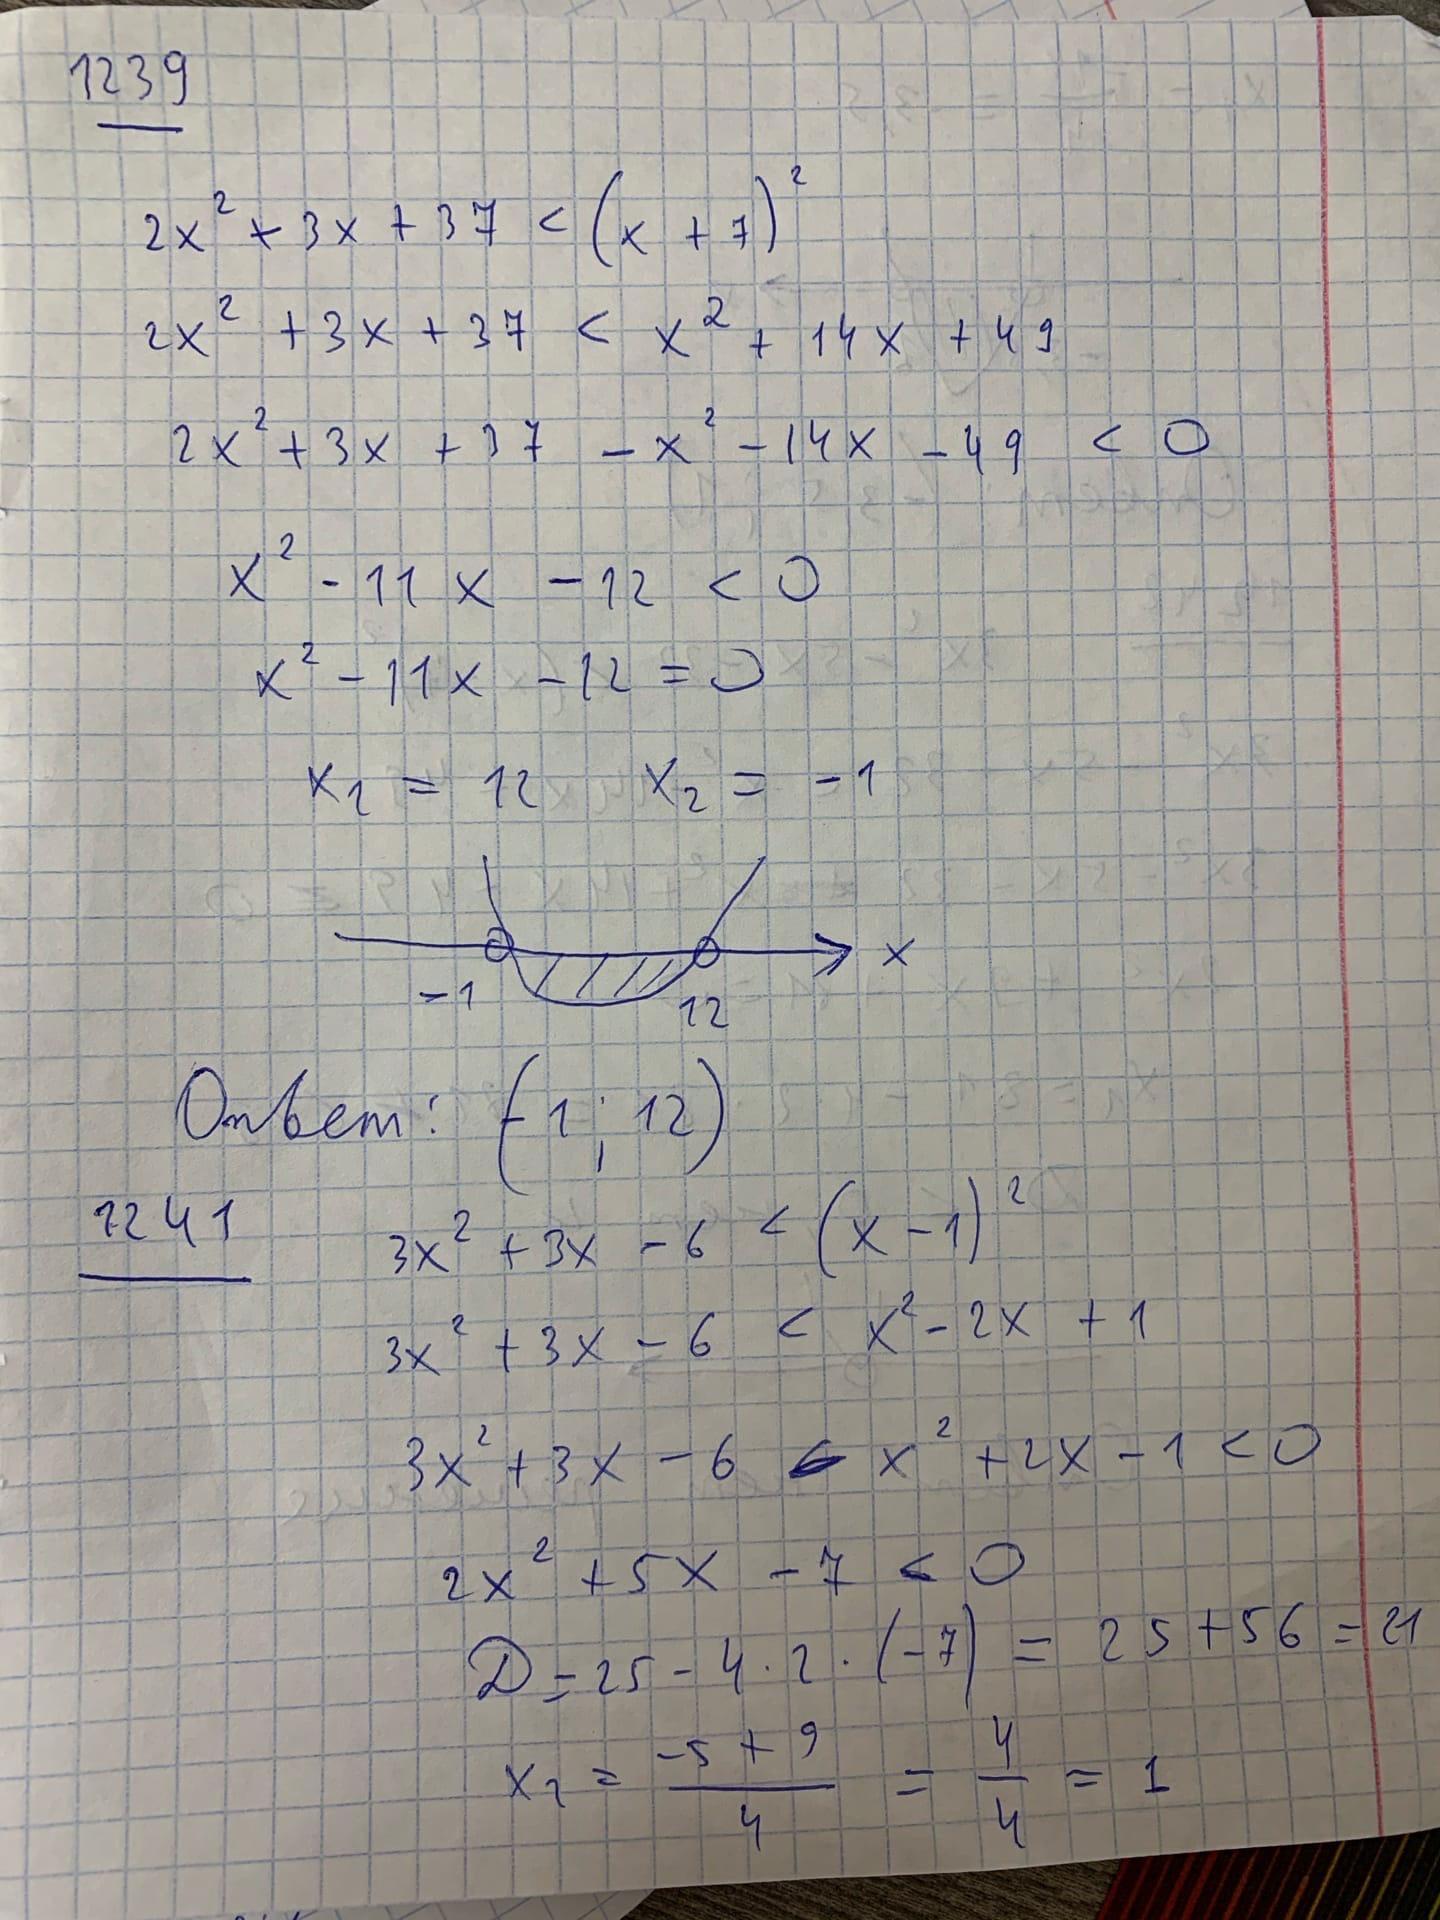 1239
2x² + 3x + 37 < (x + 7)²
2x² + 3x + 37 < x² + 14x + 49
2x² + 3x + 37 - x² - 14x - 49 < 0
x² - 11x - 12 < 0
x² - 11x - 12 = 0
x₁ = 12 x₂ = -1
x
-1 12
Ответ: (-1; 12)
1241 3x² + 3x - 6 < (x - 1)²
3x² + 3x - 6 < x² - 2x + 1
3x² + 3x - 6 - x² + 2x - 1 < 0
2x² + 5x - 7 < 0
D = 25 - 4 · 2 · (-7) = 25 + 56 = 21
x₁ = (-5 + 9)/4 = 4/4 = 1